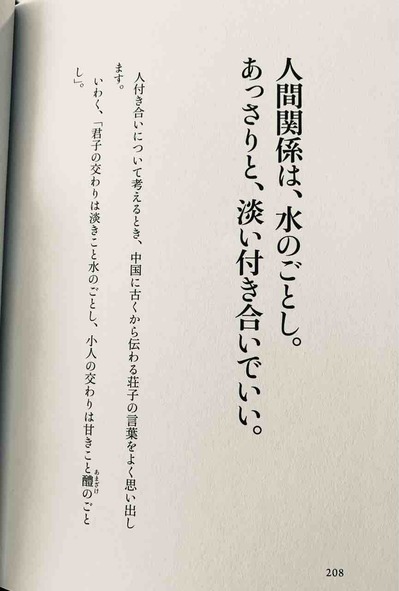 人間関係は、水のごとし。
あっさりと、淡い付き合いでいい。
人付き合いについて考えるとき、中国に古くから伝わる荘子の言葉をよく思い出し
ます。
いわく、「君子の交わりは淡きこと水のごとし、小人の交わりは甘きこと醴のごと
あまざけ
し」。
208